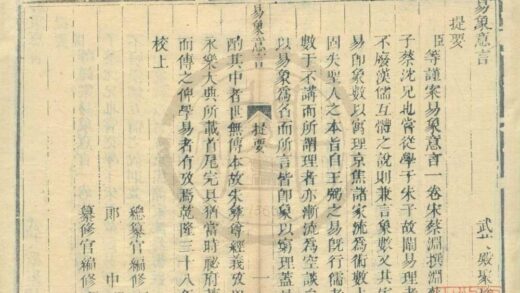 易象意言 武
提要
臣等謹案易象意言一卷宋蔡淵撰淵
子蔡沈兄也嘗從學于朱子故闡易理
不廢漢儒互體之說則兼言象數又其
易即象數以寓理京焦諸家流為術數
因失聖人之本旨自王弼之易既行儒
數于不講而所謂理者亦漸流為空談
以易象為名而所言皆即象以窮理蓋
易象意言 提要 一
酌其中者世無傳本故朱彝尊經義攷
永樂大典所載首尾完具猶當時祕府
而傳之俾學易者有攷焉乾隆三十八年
校上
總纂官編修
郎中
纂修官編修